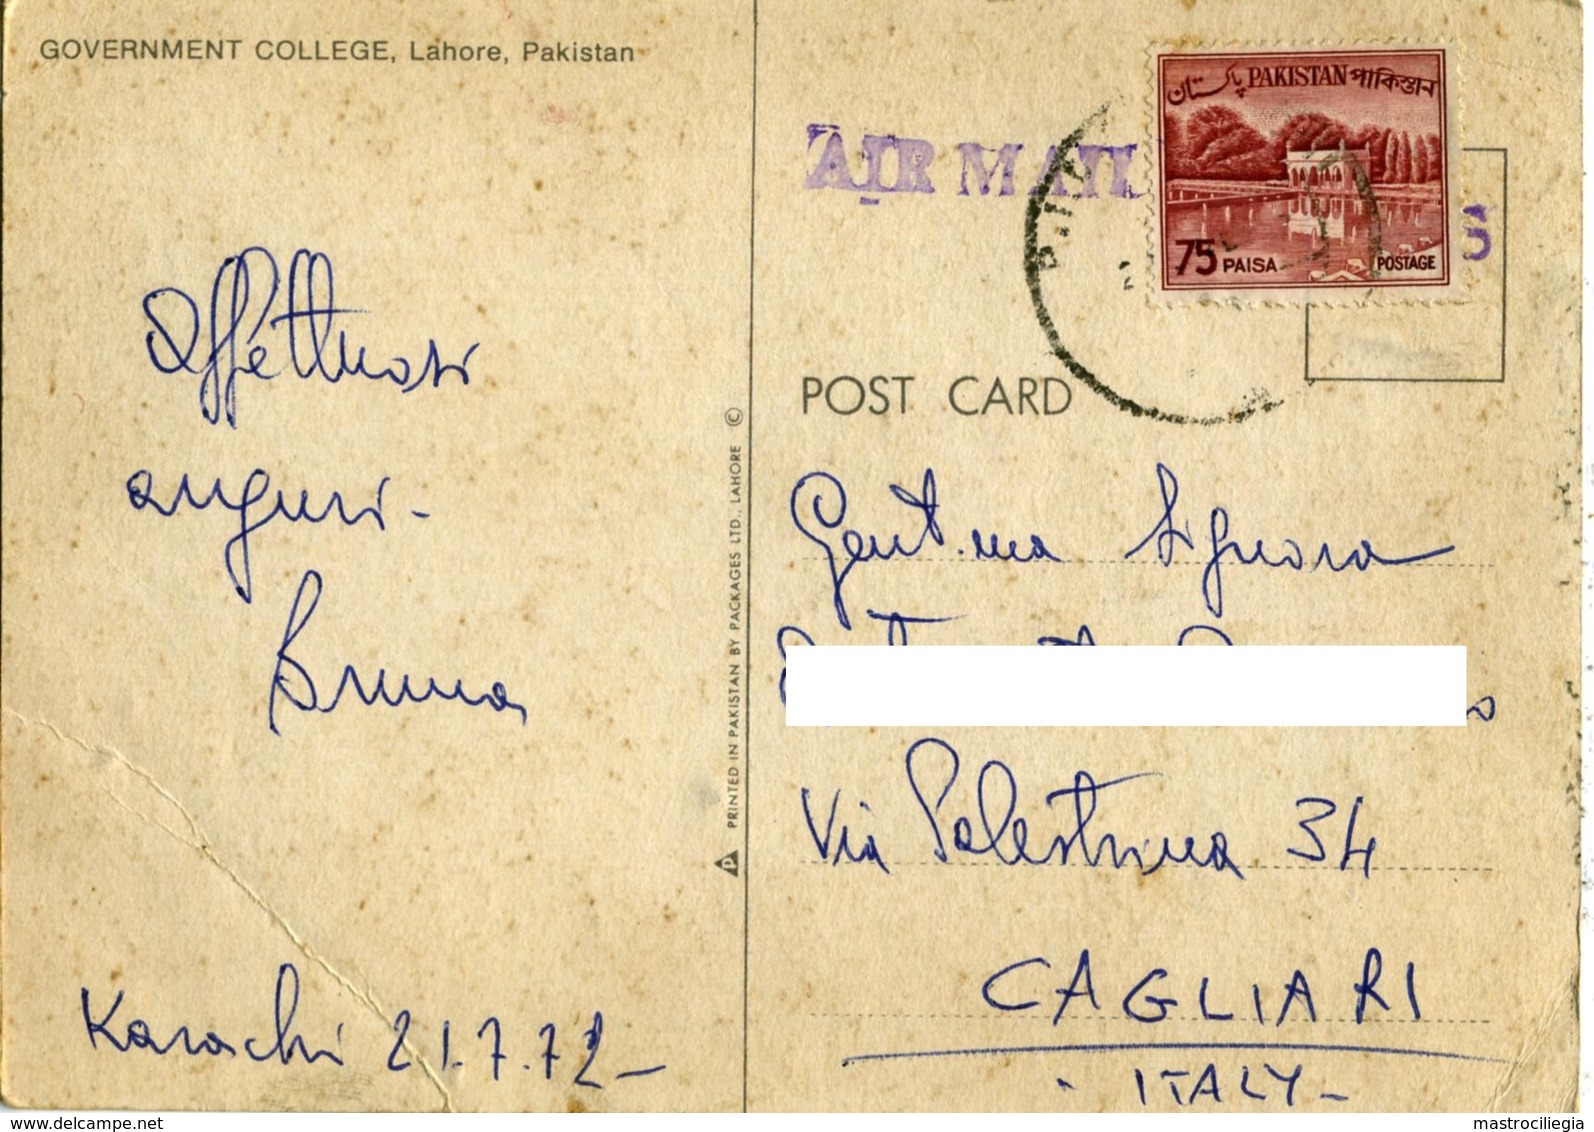 GOVERNMENT COLLEGE, Lahore, Pakistan
AIR MAIL
پاکستان PAKISTAN পাকিস্তান
75 PAISA POSTAGE
POST CARD
Affettuosi
auguri-
Bruna
Karachi 21.7.72-
PRINTED IN PAKISTAN BY PACKAGES LTD., LAHORE ©
Gent.ma Signora
Via Palestrina 34
CAGLIARI
- ITALY -
www.delcampe.net
mastrociliegia